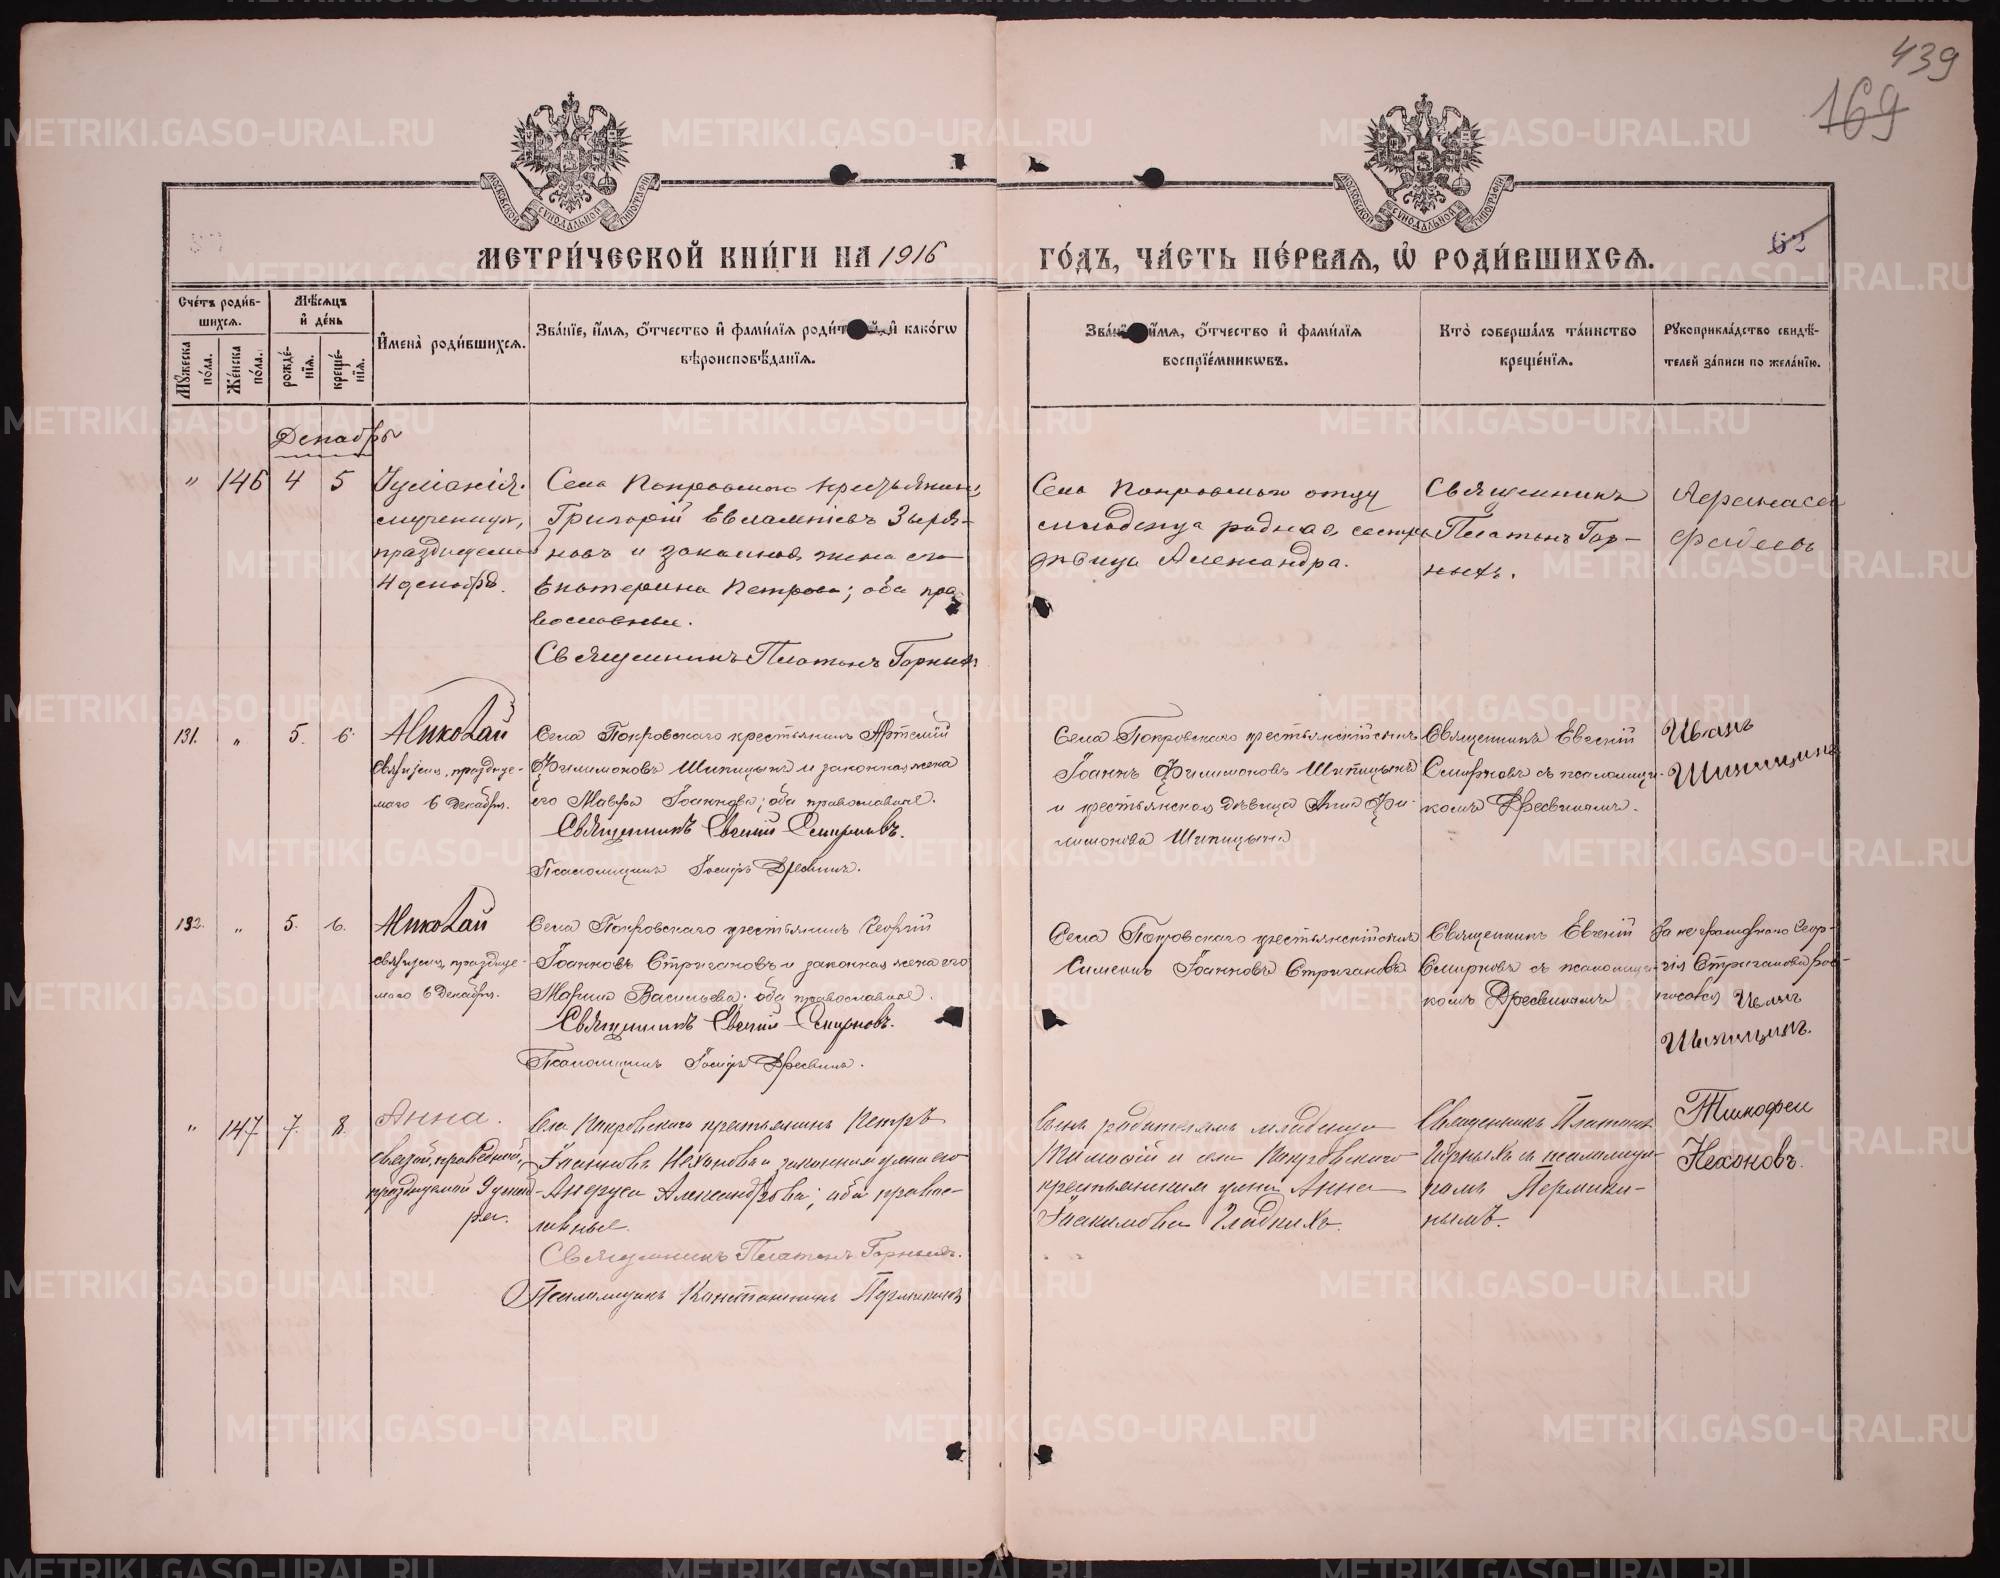 439
169
МОСКОВСКОЙ СѴНОДАЛЬНОЙ ТИПОГРАФІИ
МОСКОВСКОЙ СѴНОДАЛЬНОЙ ТИПОГРАФІИ
МЕТРИ́ЧЕСКОЙ КНИ́ГИ НА 1916 ГО́ДЪ, ЧА́СТЬ ПЕ́РВАЯ, Ѡ҆ РОДИ́ВШИХСЯ.
62
Сче́тъ роди́в-
шихся.
Мѣ́сяцъ
и҆ де́нь
Мꙋжеска по́ла.
Же́нска по́ла.
рожде́-
нїя.
креще́-
нїя.
И҆мена̀ роди́вшихся.
Зва́нїе, и҆́мя, ѻ҆́тчество и҆ фами́лїя роди́т й, и҆ како́гѡ
вѣроисповѣ́данїя.
Зва́нїе, и҆́мя, ѻ҆́тчество и҆ фами́лїя
воспрїе́мникѡвъ.
Кто̀ соверша́лъ та́инство
креще́нїя.
Рꙋкоприкла́дство свидѣ́-
телей за́писи по жела́нїю.
Декабрь
" 146 4 5
Іуліанія.
мученицы,
празднуемой
4 декабря.
Села Покровскаго крестьянин
Григорій Евлампіевъ Зыря-
новъ и законная жена его
Екатерина Петрова; оба пра
вославные.
Священникъ Платонъ Горныхъ
Села Покровскаго отцу
младенца родная сестра
дѣвица Александра.
Священникъ
Платонъ Гор-
ныхъ.
131. " 5. 6.
Николай
святител, праздуе-
маго 6 Декабря.
Села Покровскаго крестьянинъ Артемій
Филимоновъ Шипицынъ и законная жена
его Мавра Іоаннова; оба православные.
Священникъ Евгеній Смирновъ.
Псаломщикъ Іосифъ Дресвинъ.
Села Покровскаго крестьянскій сынъ
Іоаннъ Филимоновъ Шипицынъ
и крестьянская дѣвица Анна Фи-
лимонова Шипицына
Священникъ Евгеній
Смирновъ съ псаломщи-
комъ Дресвинымъ.
Иванъ
Шипицинъ
132. " 5. 6.
Николай
святител, праздуе-
маго 6 Декабря.
Села Покровскаго крестьянинъ Георгій
Іоанновъ Стригановъ и законная жена его
Марина Васильева; оба православные.
Священникъ Евгеній Смирновъ.
Псаломщикъ Іосифъ Дресвинъ.
Села Покровскаго крестьянскій сынъ
Симеонъ Іоанновъ Стригановъ
Священникъ Евгеній
Смирновъ съ псаломщи-
комъ Дресвинымъ
За неграмотнаго Геор-
гія Стриганова рос-
писался Иванъ
Шипицинъ.
" 147 7. 8.
Анна.
святой, праведной,
празднуемой 9 декаб-
ря.
Села Покровскаго крестьянинъ Петръ
Іоанновъ Нехоновъ и законная жена его
Александрова; оба правос-
лавные.
Священникъ Платонъ Горныхъ.
Псаломщикъ Константинъ Пермикинъ
Сынъ родителямъ младенца
Тимофей и села Покровскаго
крестьянская жена Анна
Іоакимова Гладкихъ.
Священникъ Платонъ
Горныхъ съ псаломщи-
комъ Пермики-
нымъ.
Тимофеи
Нехоновъ.